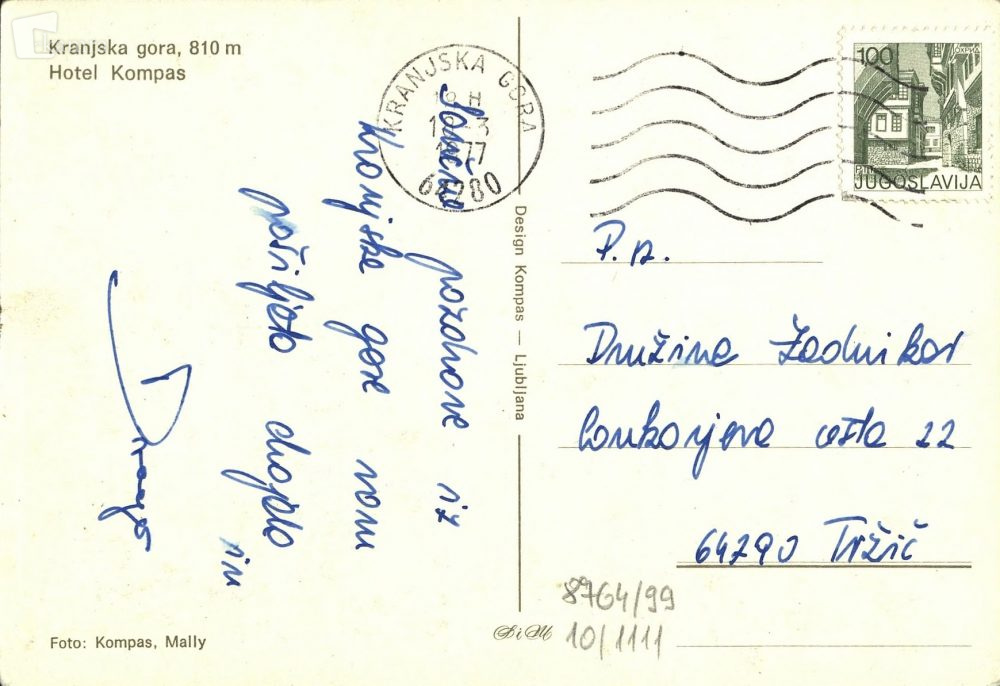 Kranjska gora, 810 m
Hotel Kompas
KRANJSKA GORA
18 H
77
64280
100
OHRID
JUGOSLAVIJA
pozdrave iz
Kranjske gore vam
pošiljata
in
Drago
Design Kompas — Ljubljana
P. n.
Družina Zadnikar
Cankarjeva cesta 22
64290 Tržič
8764/99
10/1111
Foto: Kompas, Mally
SiM